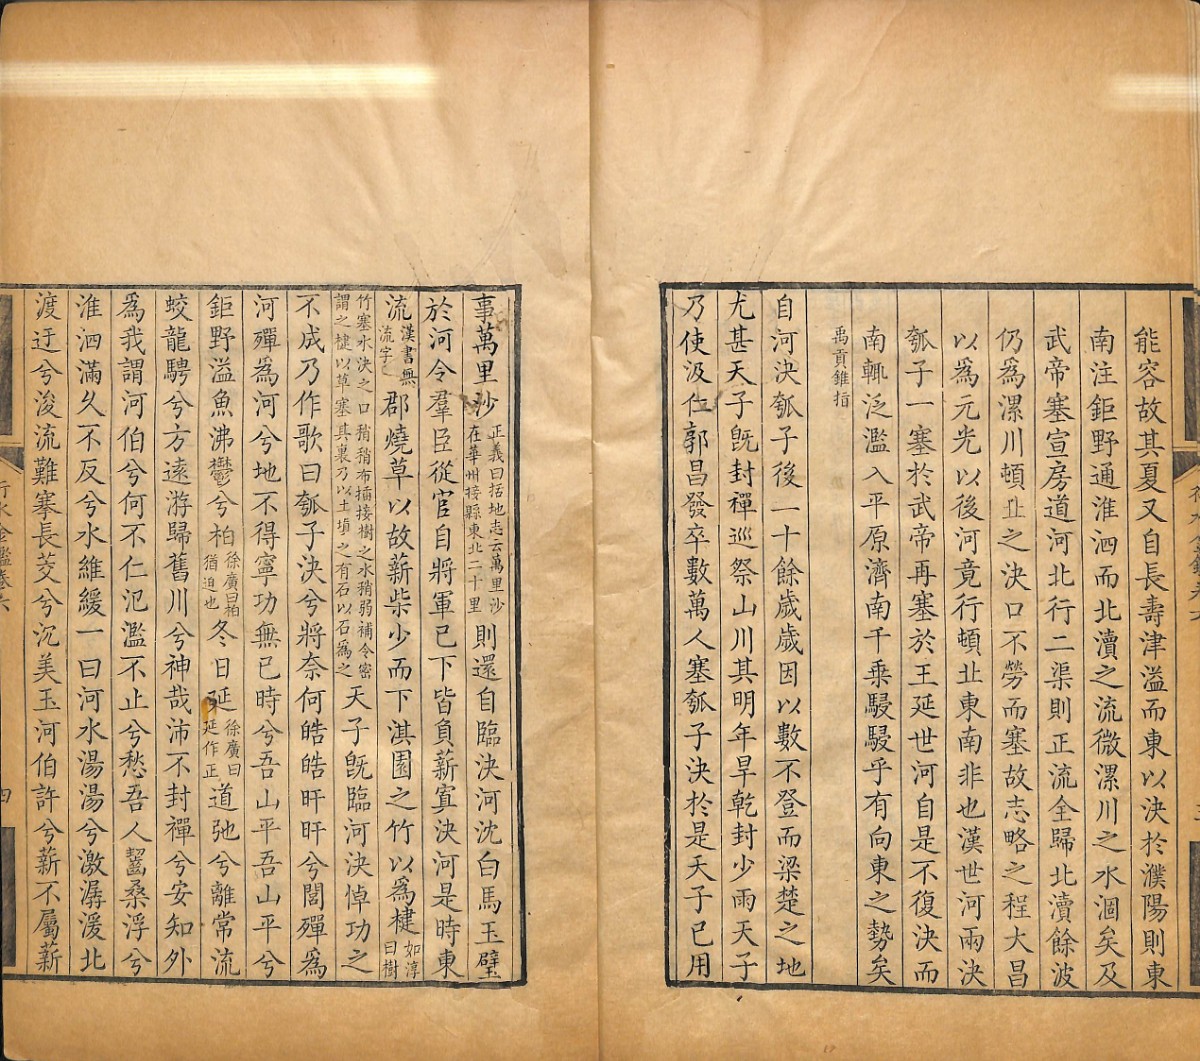 能容故其夏又自長壽津溢而東以決於濮陽則東
南注鉅野通淮泗而北瀆之流微漯川之水涸矣及
武帝塞宣房道河北行二渠則正流全歸北瀆餘波
仍為漯川頓丘之決口不勞而塞故志略之程大昌
以為元光以後河竟行頓丘東南非也漢世河兩決
瓠子一塞於武帝再塞於王延世河自是不復決而
南輒泛濫入平原濟南千乗駸駸乎有向東之勢矣
禹貢錐指
自河決瓠子後二十餘歲歲因以數不登而梁楚之地
尤甚天子旣封禪巡祭山川其明年旱乾封少雨天子
乃使汲仁郭昌發卒數萬人塞瓠子決於是天子已用
事萬里沙正義曰括地志云萬里沙在華州接縣東北二十里則還自臨決河沈白馬玉璧
於河令羣臣從官自將軍已下皆負薪寘決河是時東
流漢書無流字郡燒草以故薪柴少而下淇園之竹以為楗如淳曰樹
竹塞水決之口稍稍布插接樹之水稍弱補令密謂之楗以草塞其裏乃以土塡之有石以石為之天子旣臨河決悼功之
不成乃作歌曰瓠子決兮將奈何皓皓旰旰兮閭殫為
河殫為河兮地不得寧功無已時兮吾山平吾山平兮
鉅野溢魚沸鬱兮柏徐廣曰柏猶迫也冬日延徐廣曰延作正道弛兮離常流
蛟龍騁兮方遠游歸舊川兮神哉沛不封禪兮安知外
為我謂河伯兮何不仁氾濫不止兮愁吾人齧桑浮兮
淮泗滿久不反兮水維緩一曰河水湯湯兮激潺湲北
渡迂兮浚流難塞長茭兮沉美玉河伯許兮薪不屬薪
行水金鑑卷六
四